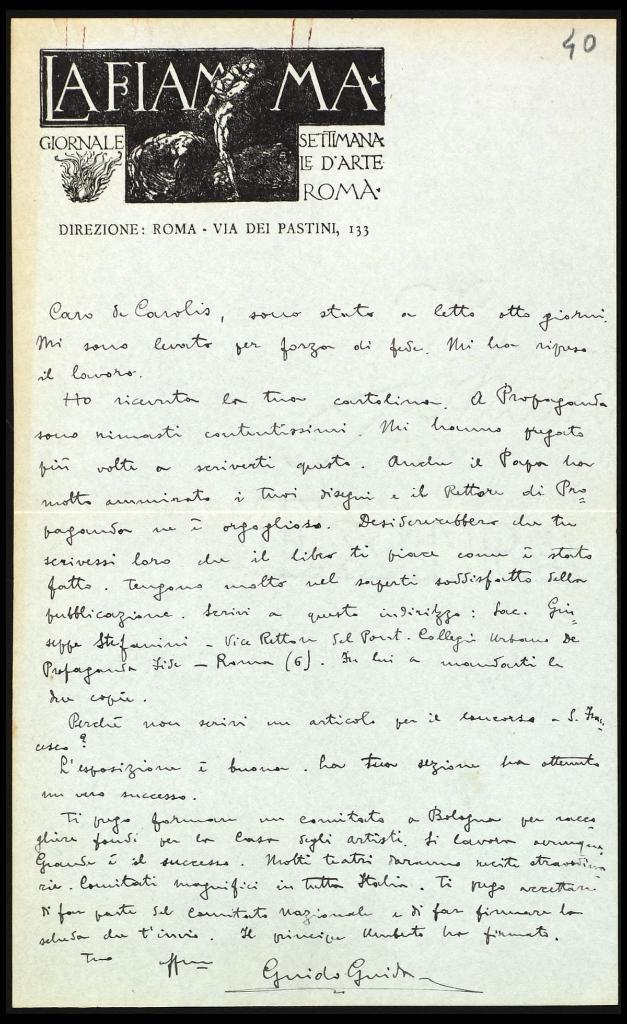 40
LA FIAMMA
GIORNALE SETTIMANA
LE D'ARTE
ROMA
DIREZIONE: ROMA - VIA DEI PASTINI, 133
Caro de Carolis, sono stato a letto otto giorni.
Mi sono levato per forza di fede. Mi ha ripreso
il lavoro.
Ho ricevuta la tua cartolina. A Propaganda
sono rimasti contentissimi. Mi hanno pregato
più volte a scriverti questo. Anche il Papa ha
molto ammirato i tuoi disegni e il Rettore di Pro=
paganda ne è orgoglioso. Desidererebbero che tu
scrivessi loro che il libro ti piace come è stato
fatto. Tengono molto nel saperti soddisfatto della
pubblicazione. Scrivi a questo indirizzo: Sac. Giu=
seppe Stefanini - Vice Rettore del Pont. Collegio Urbano De
Propaganda Fide - Roma (6). Fu lui a mandarti le
due copie.
Perchè non scrivi un articolo per il concorso a S. Fran=
cesco?
L'esposizione è buona. La tua sezione ha ottenuto
un vero successo.
Ti prego formare un comitato a Bologna per racco=
gliere fondi per la Casa degli artisti. Si lavora ovunque.
Grande è il successo. Molti teatri daranno recite straordina=
rie. Comitati magnifici in tutta Italia. Ti prego accettare
di far parte del Comitato Nazionale e di far firmare la
scheda che t'invio. Il principe Umberto ha firmato.
Tuo aff.mo
Guido Guida